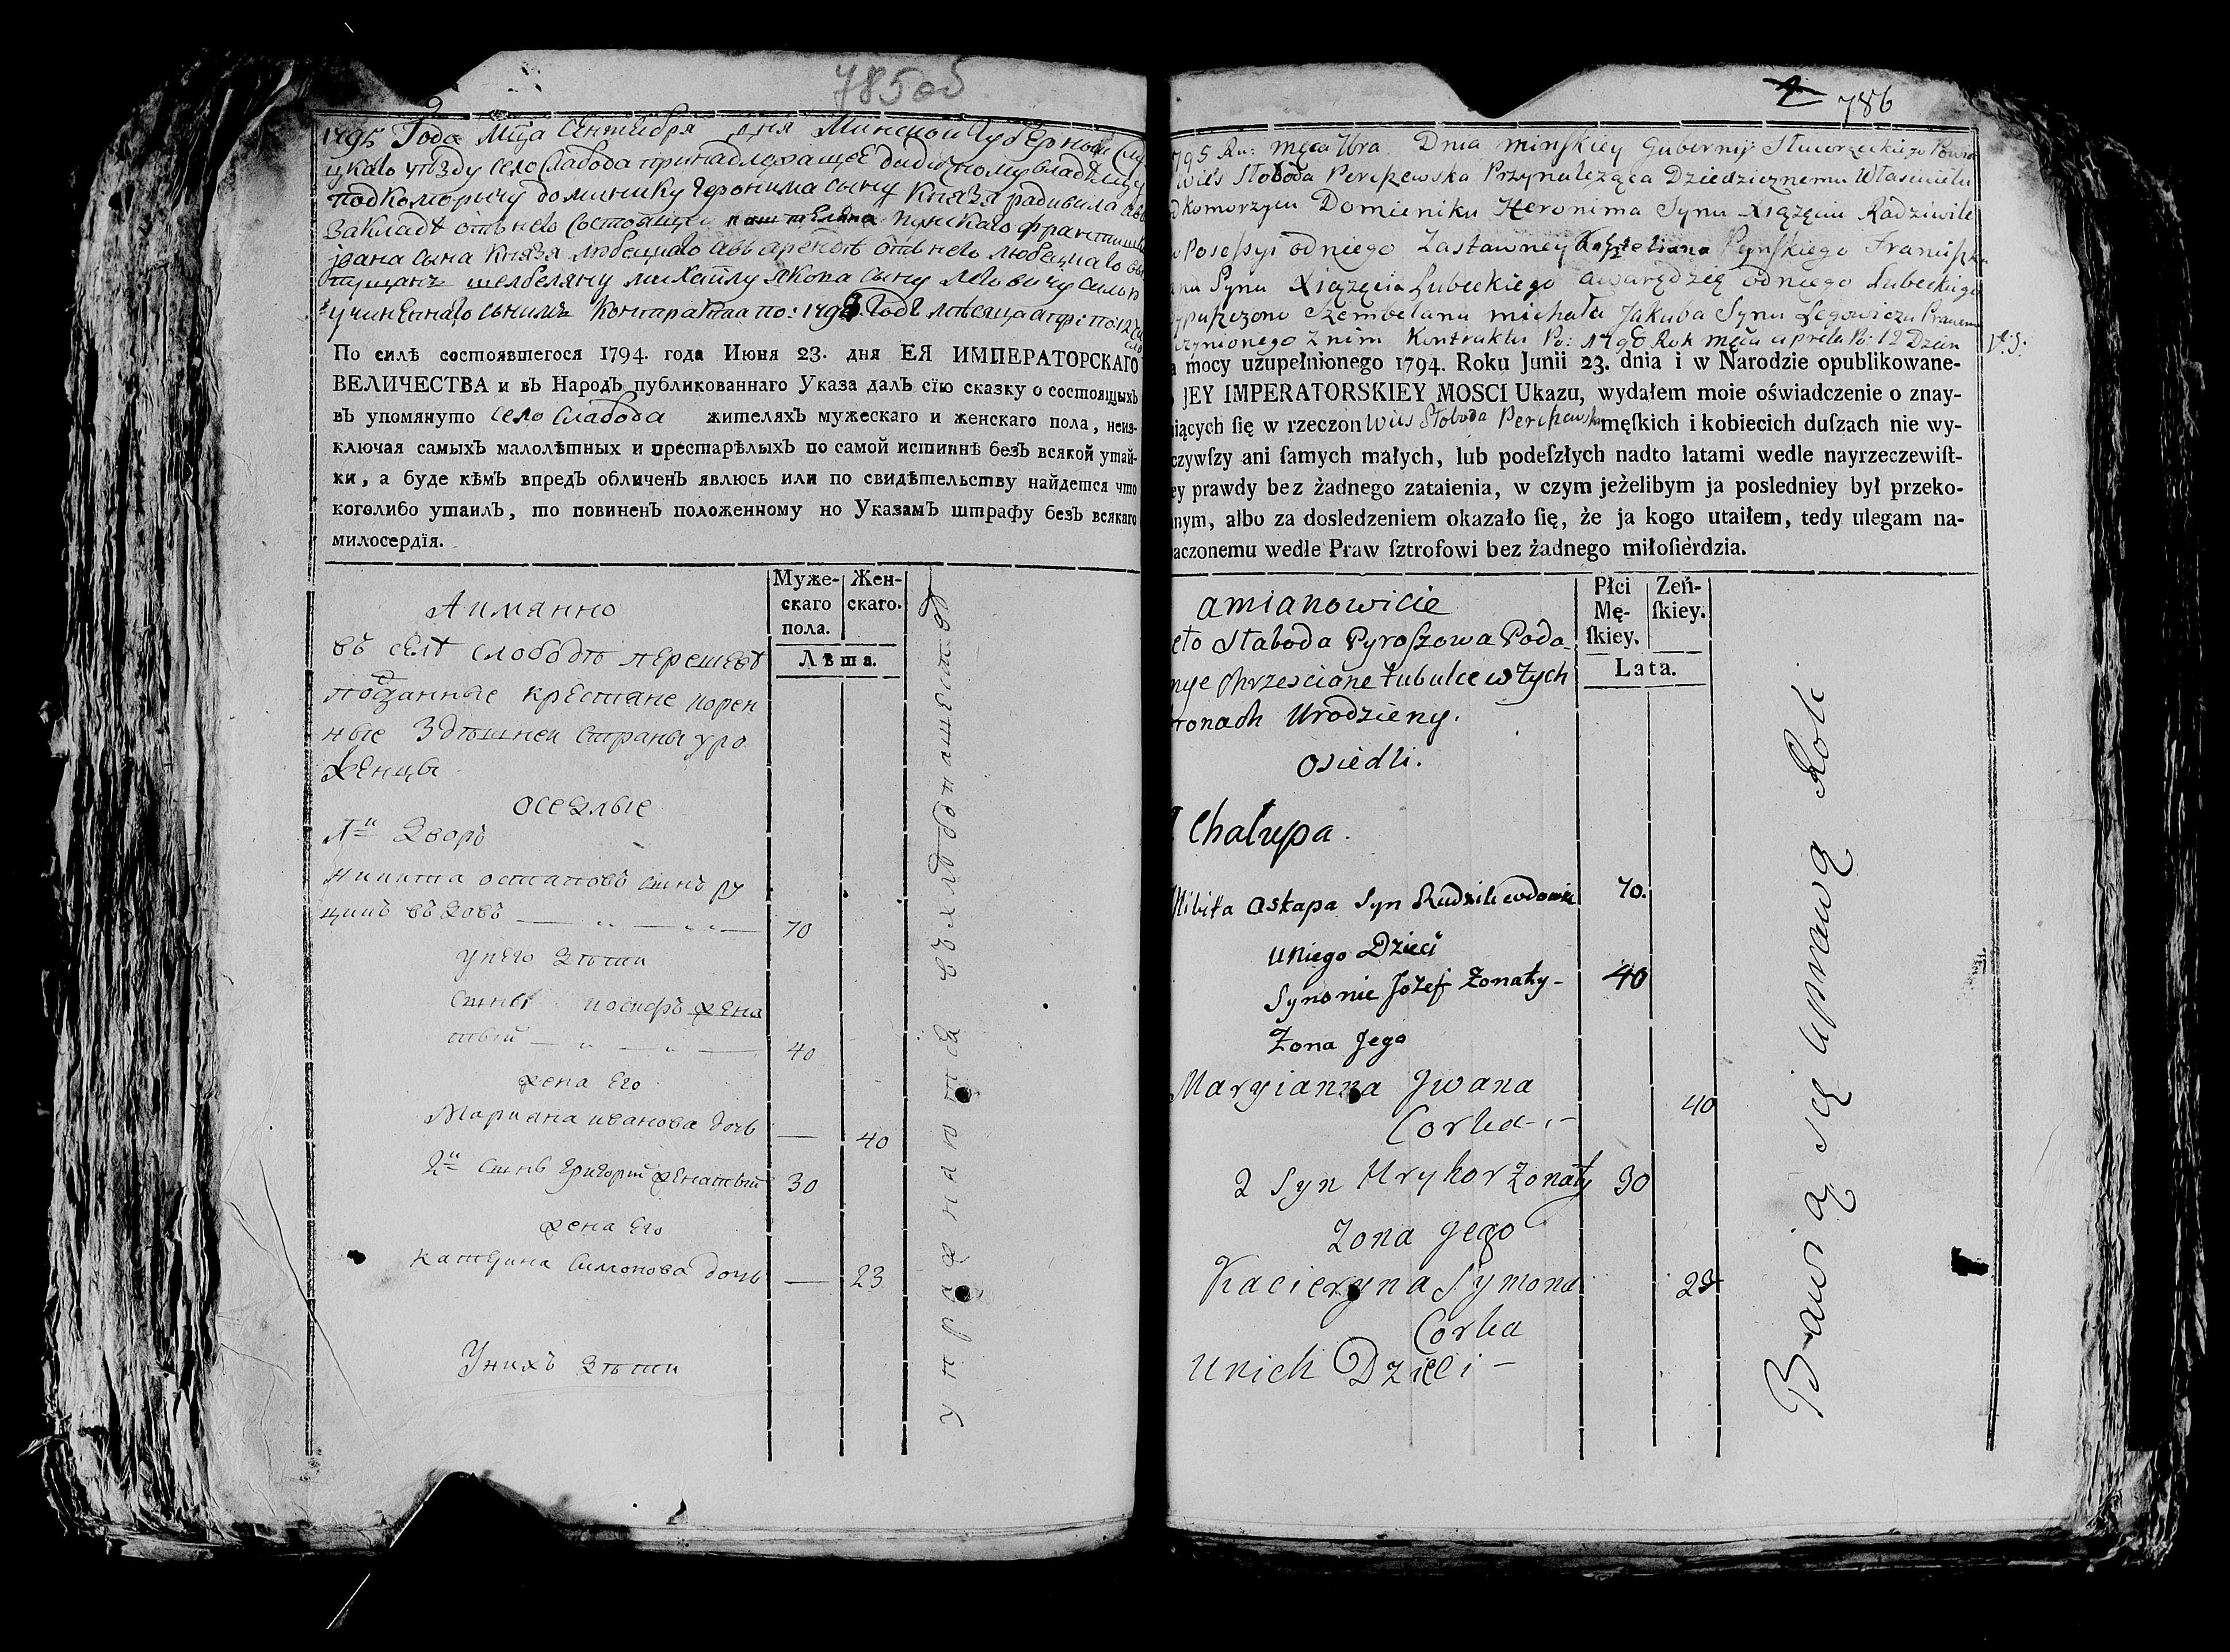 785об
1795 Года Мца Сентября дня Минской Губернии Слу
цкаго уѣзду село Слабода принадлежащее дидичному владѣлцу
подкоморичу доминику Геронима сыну Князя радивила
закладѣ отъ него состоящей пинскаго францишка
Iвана сына Князя любецкаго авъ арендѣ отъ него любецкаго
шелбеляну михайлу Якова сыну Леговичу
учиненнаго снимъ Контракта по: 179 Годъ месяца апре: по: 12
По силѣ состоявшегося 1794. года Июня 23. дня ЕЯ ИМПЕРАТОРСКАГО
ВЕЛИЧЕСТВА и въ Народъ публикованнаго Указа далъ сію сказку о состоящыхъ
въ упомянуто село Слабода жителяхъ мужескаго и женскаго пола, неиз-
ключая самыхъ малолѣтных и престарѣлыхъ по самой истиннѣ безъ всякой утай-
ки, а буде кѣмъ впредъ обличенъ явлюсь или по свидѣтельству найдется что
коголибо утаилъ, то повиненъ положенному но Указамъ штрафу безъ всякаго
милосердія.
Муже-
скаго
пола.
Жен-
скаго.
Лѣта.
Аимянно
въ селѣ слободѣ перешевѣ
подданные крестяне корен
ные здѣшней страны уро
женцы
оседлые
1й дворъ
Никита остаповъ сынъ ру
цкий вдовъ 70
унего дѣти
сыны иосифъ жена
тый 40
жена Его
Марияна иванова дочь — 40
2й сынъ Григорий женатый 30
жена Его
катерина Симонова дочь — 23
Унихъ дѣти
упражняются въ хлѣбопашествѣ
786
795 Ru: męca Dnia minſkiey Gubernij Słuczeckiego
wieś Słoboda Perepzewska Przynależąca Dziedzicznemu Włascicielu
dkomorzycu Domieniku Heronima Synu Xiążęciu Radziwile
w Poseſsyi odniego Zastawney Kasztelana Pynſkiego Franciſzka
ana Synu Xiążęcia Lubeckiego awarędzeą odniego Lubeckiego
ypuſzczono Szembelanu michała Jakuba Synu Legowiczu Prawem
zynionego Znim Kontraktu Po: 1798 Rok męca aprela Po: 12 Dzien
a mocy uzupełnionego 1794. Roku Junii 23. dnia i w Narodzie opublikowane-
o JEY IMPERATORSKIEY MOSCI Ukazu, wydałem moie oświadczenie o znay-
uiących ſię w rzeczon Wieś Słoboda męſkich i kobiecich duſzach nie wy-
czywſzy ani ſamych małych, lub podeſzłych nadto latami wedle nayrzeczewiſt-
ey prawdy bez żadnego zataienia, w czym jeżelibym ja posledniey był przeko-
nym, albo za dosledzeniem okazało ſię, że ja kogo utaiłem, tedy ulegam na-
aczonemu wedłe Praw ſztrofowi bez żadnego miłoſiérdzia.
Płci
Mę-
ſkiey.
Zeń-
ſkiey.
Lata.
amianowicie
eło Słaboda Pyroſzowa Podd
nye Chrzesciane tubulce w tych
tronach Urodzieny.
osiedli.
1 Chałupa.
Nikita Ostapa Syn Rudzili wdowiec 70.
uniego Dzieci
Synonie Jozef Zonaty 40
Żona Jego
Maryianna Jwana 40
Corka
2 Syn Hryhor Zonaty 30
Zona jego
Kacieryna Symona 23
Corka
unich Dzieci
Bawią się uprawą Roli